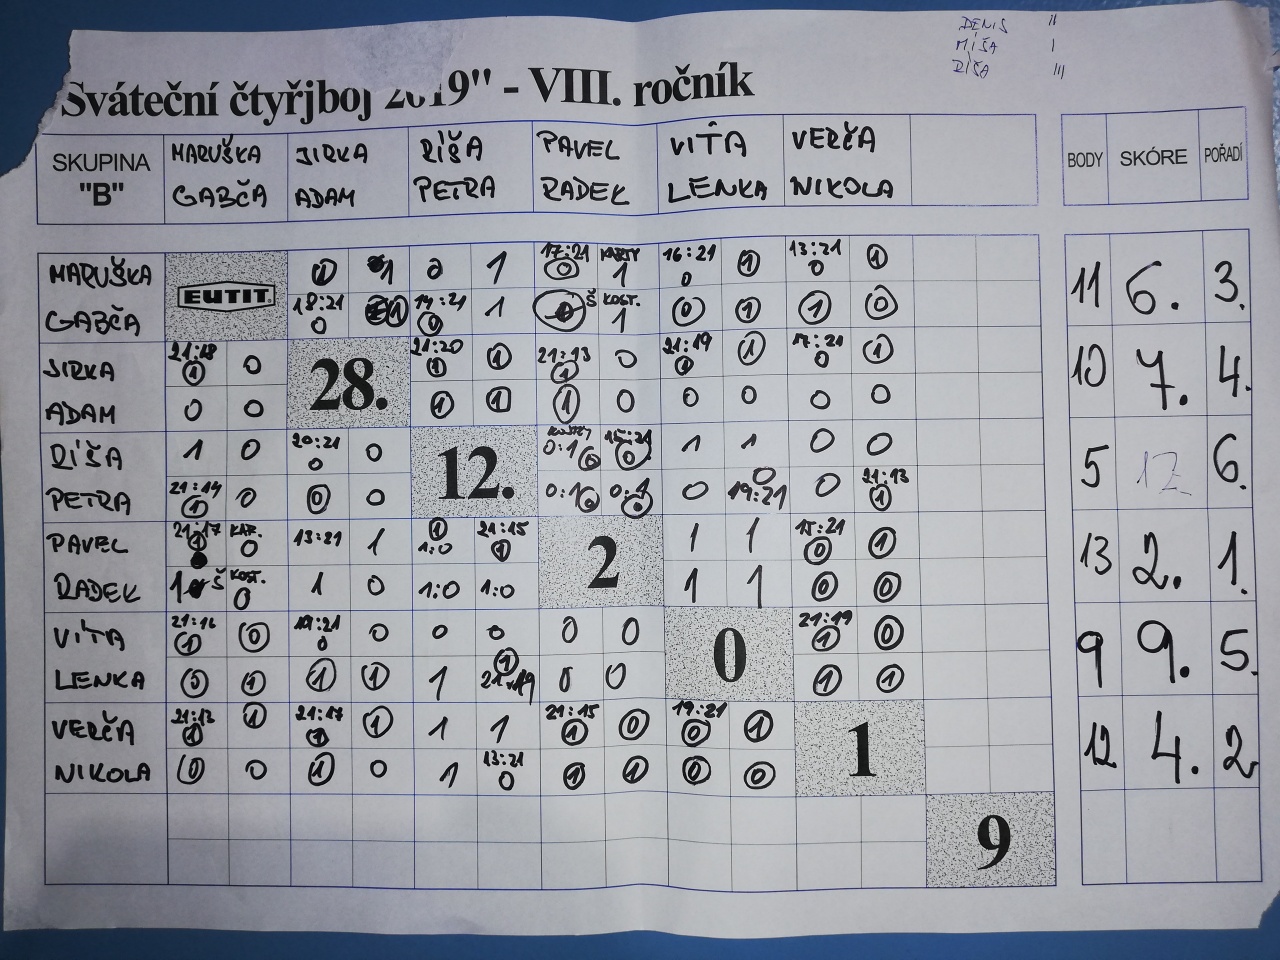 DENIS II
MÍŠA I
RÍŠA III
"Sváteční čtyřjboj 2019" - VIII. ročník
SKUPINA "B" MARUŠKA GABČA JIRKA ADAM RÍŠA PETRA PAVEL RADEK VÍŤA LENKA VERČA NIKOLA BODY SKÓRE POŘADÍ
MARUŠKA EUTIT 0 1 0 1 17:21 0 KARTY 1 16:21 0 1 13:21 0 1 11 6. 3.
GABČA 18:21 0 1 14:21 0 1 0 Š KOST. 1 0 1 1 0
JIRKA 21:18 1 0 28. 21:20 1 1 21:13 1 0 21:19 1 1 17:21 0 1 10 7. 4.
ADAM 0 0 1 1 1 0 0 0 0 0
RÍŠA 1 0 20:21 0 0 12. KOSTKY 0:1 0 15:21 0 1 1 0 0 5 12 6.
PETRA 21:14 1 0 0 0 0:1 0 0:1 0 0 0 19:21 0 21:13 1
PAVEL 21:17 1 KAR. 0 13:21 1 1 1:0 21:15 1 2 1 1 15:21 0 1 13 2. 1.
RADEK 1 Š KOST. 0 1 0 1:0 1:0 1 1 0 0
VÍŤA 21:16 1 0 19:21 0 0 0 0 0 0 0 21:19 1 0 9 9. 5.
LENKA 0 1 1 1 1 1 21:19 0 0 1 1
VERČA 21:13 1 1 21:17 1 1 1 1 21:15 1 0 19:21 0 1 1 12 4. 2
NIKOLA 0 0 1 0 1 13:21 0 1 1 0 0
9